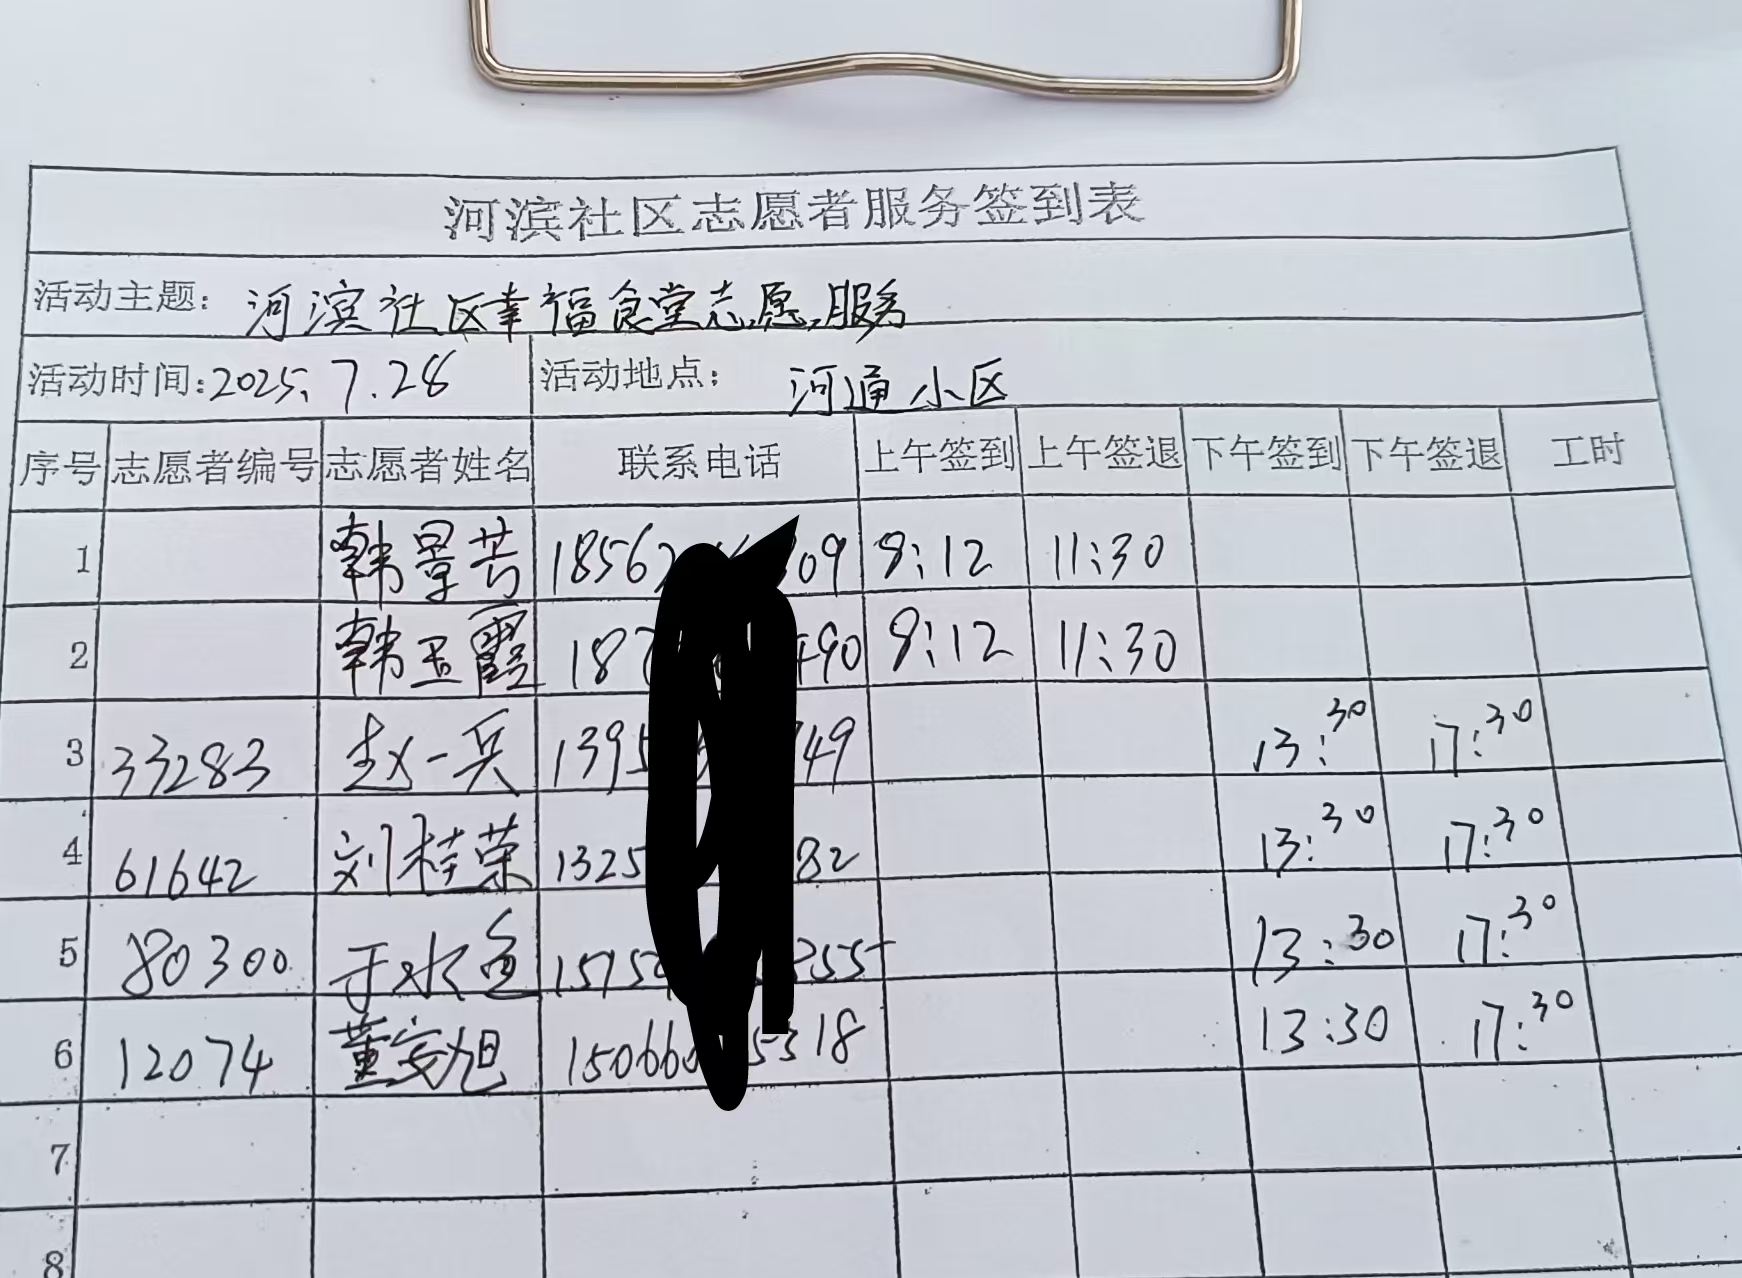 河滨社区志愿者服务签到表
活动主题：河滨社区幸福食堂志愿服务
活动时间：2025.7.28 活动地点：河通小区
序号 志愿者编号 志愿者姓名 联系电话 上午签到 上午签退 下午签到 下午签退 工时
1 韩景芳 1856 09 9:12 11:30
2 韩玉霞 18 490 9:12 11:30
3 33283 赵一兵 1395 49 13:30 17:30
4 61642 刘桂荣 1325 82 13:30 17:30
5 80300 于水 1515 355 13:30 17:30
6 12074 董安旭 15066 5318 13:30 17:30
7
8